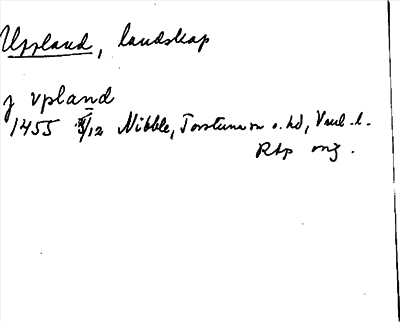 Uppland, landskap
j vpland
1455 3/12 Nibble, Torstuna sn o. hd, Vml. l.
RAp orig.